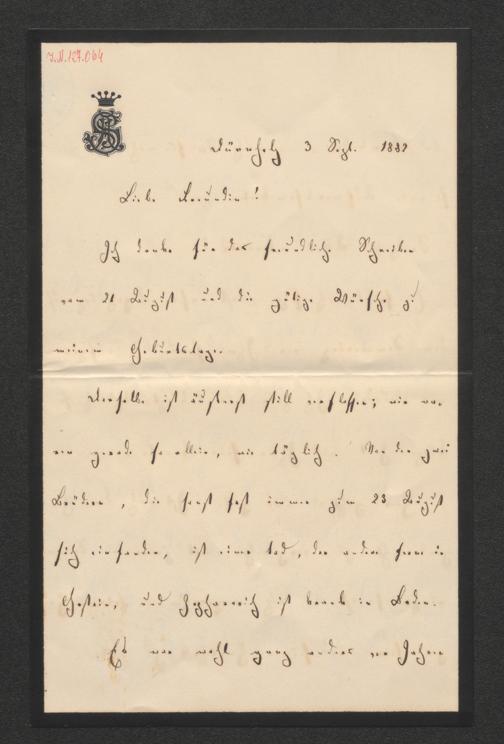 I.N.127.064
Dürnholz 3 Sept. 1882
Liebe Freundin!
Ich danke für das freundliche Schreiben
vom 21 August und die gütigen Wünsche zu
meinem Geburtstage.
Derselbe ist äußerst still verflossen; wir waren
gerade so allein, wie täglich. Von den zwei
Brüdern, die sonst fast immer zum 23 August
sich einfanden, ist einer todt, der andere fern in
Gastein, und ist in Baden.
Es war wohl ganz anders vor Jahren